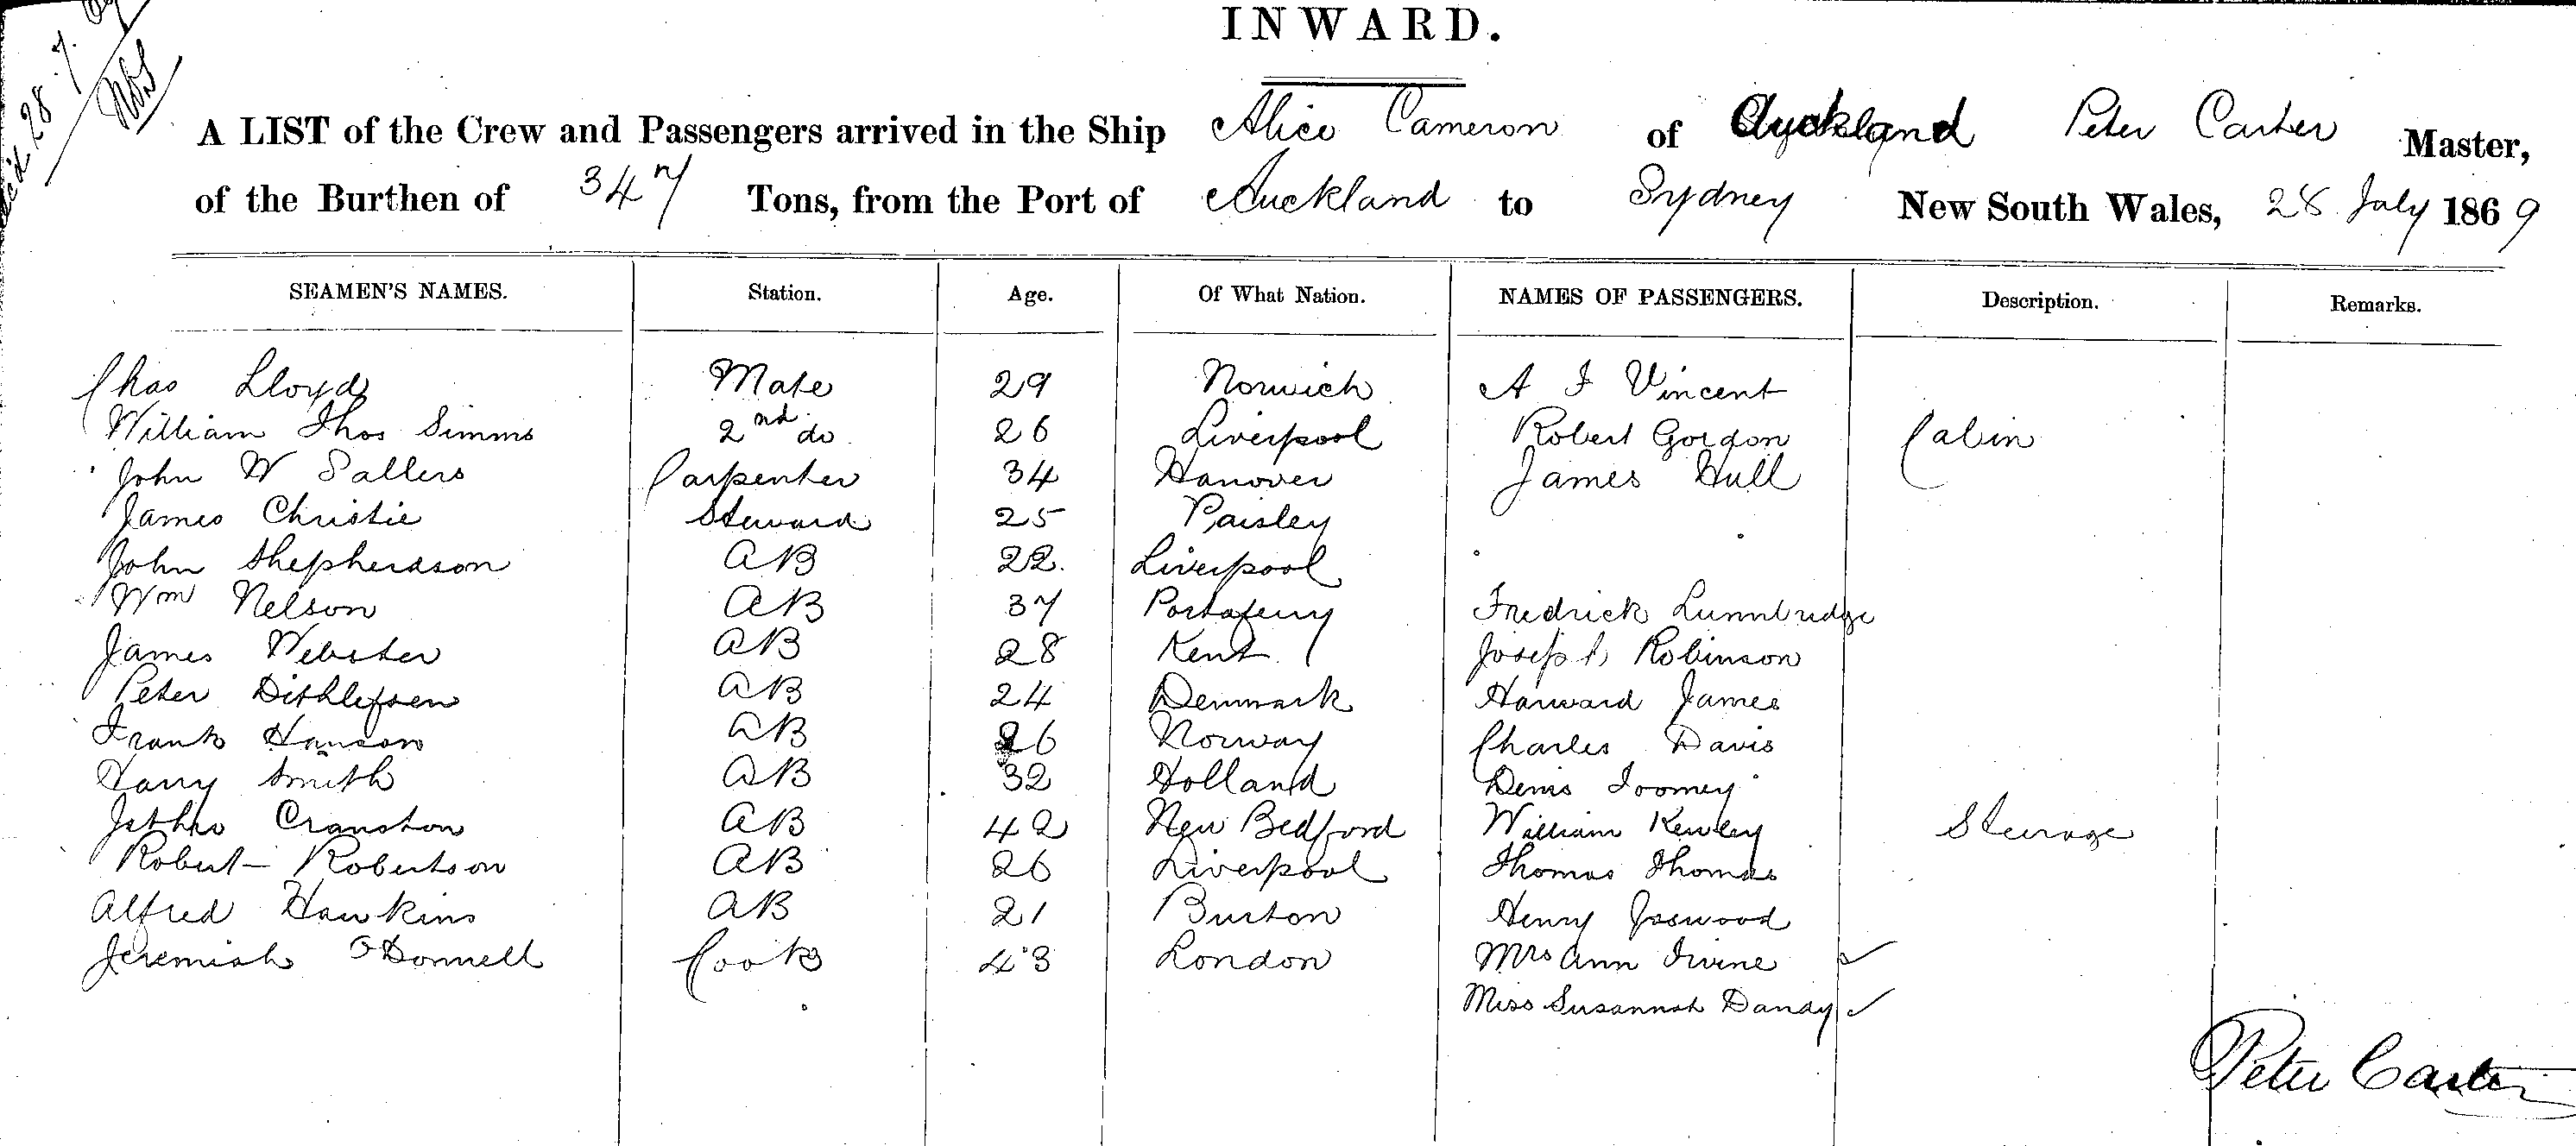 INWARD.
A LIST of the Crew and Passengers arrived in the Ship Alice Cameron of Auckland Peter Carter Master,
of the Burthen of 347 Tons, from the Port of Auckland to Sydney New South Wales, 28 July 1869
SEAMEN'S NAMES. Station. Age. Of What Nation. NAMES OF PASSENGERS. Description. Remarks.
Chas Lloyd Mate 29 Norwich A Vincent
William Thos Simms 2nd do 26 Liverpool Robert Gordon Cabin
John W Sallers Carpenter 34 Hanover James Hull
James Christie Steward 25 Paisley
John Shepherdson AB 22 Liverpool
Wm Nelson AB 37 Portaferry Fredrick
James Webster AB 28 Kent Joseph Robinson
Peter Dithlefsen AB 24 Denmark Harward James
Frank Hanson AB 26 Norway Charles Davis
Harry Smith AB 32 Holland Denis Toomey
Jethro Cranston AB 42 New Bedford William Kewley Steerage
Robert Robertson AB 26 Liverpool Thomas Thomas
Alfred Hawkins AB 21 Burton Henry
Jeremiah O'Donnell Cook 43 London Mrs Ann Irvine
Miss Susannah Dandy
Peter Carter